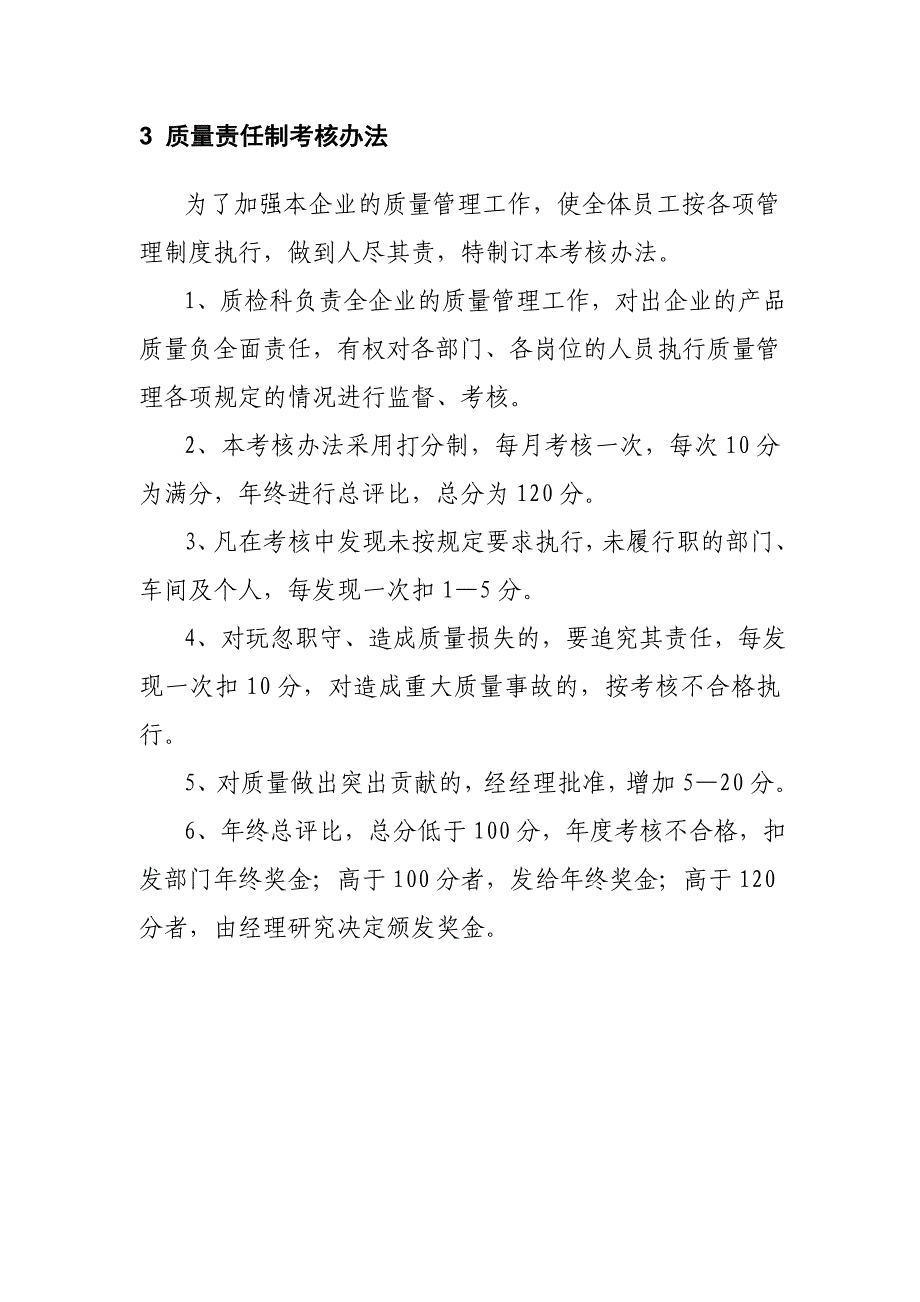 3 质量责任制考核办法
为了加强本企业的质量管理工作，使全体员工按各项管
理制度执行，做到人尽其责，特制订本考核办法。
1、质检科负责全企业的质量管理工作，对出企业的产品
质量负全面责任，有权对各部门、各岗位的人员执行质量管
理各项规定的情况进行监督、考核。
2、本考核办法采用打分制，每月考核一次，每次 10 分
为满分，年终进行总评比，总分为 120 分。
3、凡在考核中发现未按规定要求执行，未履行职的部门、
车间及个人，每发现一次扣 1—5 分。
4、对玩忽职守、造成质量损失的，要追究其责任，每发
现一次扣 10 分，对造成重大质量事故的，按考核不合格执
行。
5、对质量做出突出贡献的，经经理批准，增加 5—20 分。
6、年终总评比，总分低于 100 分，年度考核不合格，扣
发部门年终奖金；高于 100 分者，发给年终奖金；高于 120
分者，由经理研究决定颁发奖金。